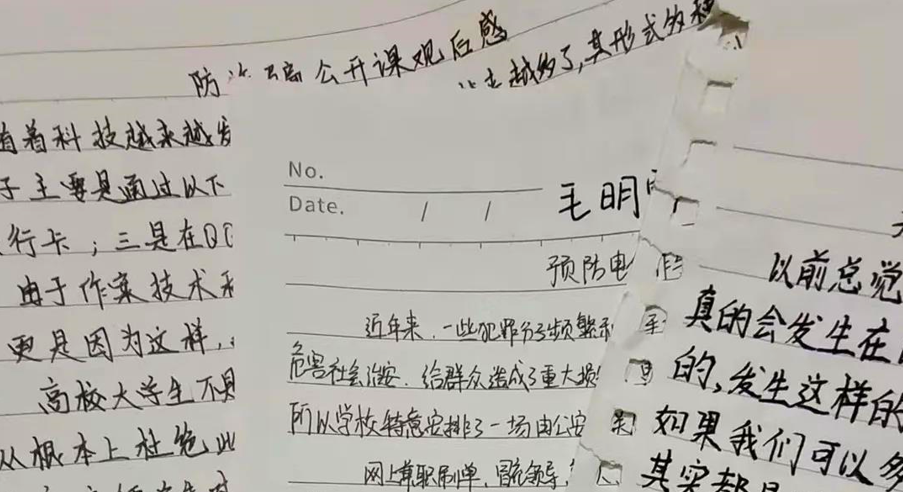 防诈骗公开课观后感
越多了,其形式多种
随着科技越来越发
子主要是通过以下
行卡;三是在QQ
由于作案技术
更是因为这样,
高校大学生不具
从根本上杜绝此
No.
Date. / /
毛明
预防电
近年来,一些犯罪分子频繁
危害社会治安,给群众造成了重大损
所以学校特意安排了一场由公安
网上兼职刷单,冒充领导,
以前总觉
真的会发生在
的,发生这样的
如果我们可以多
其实都是